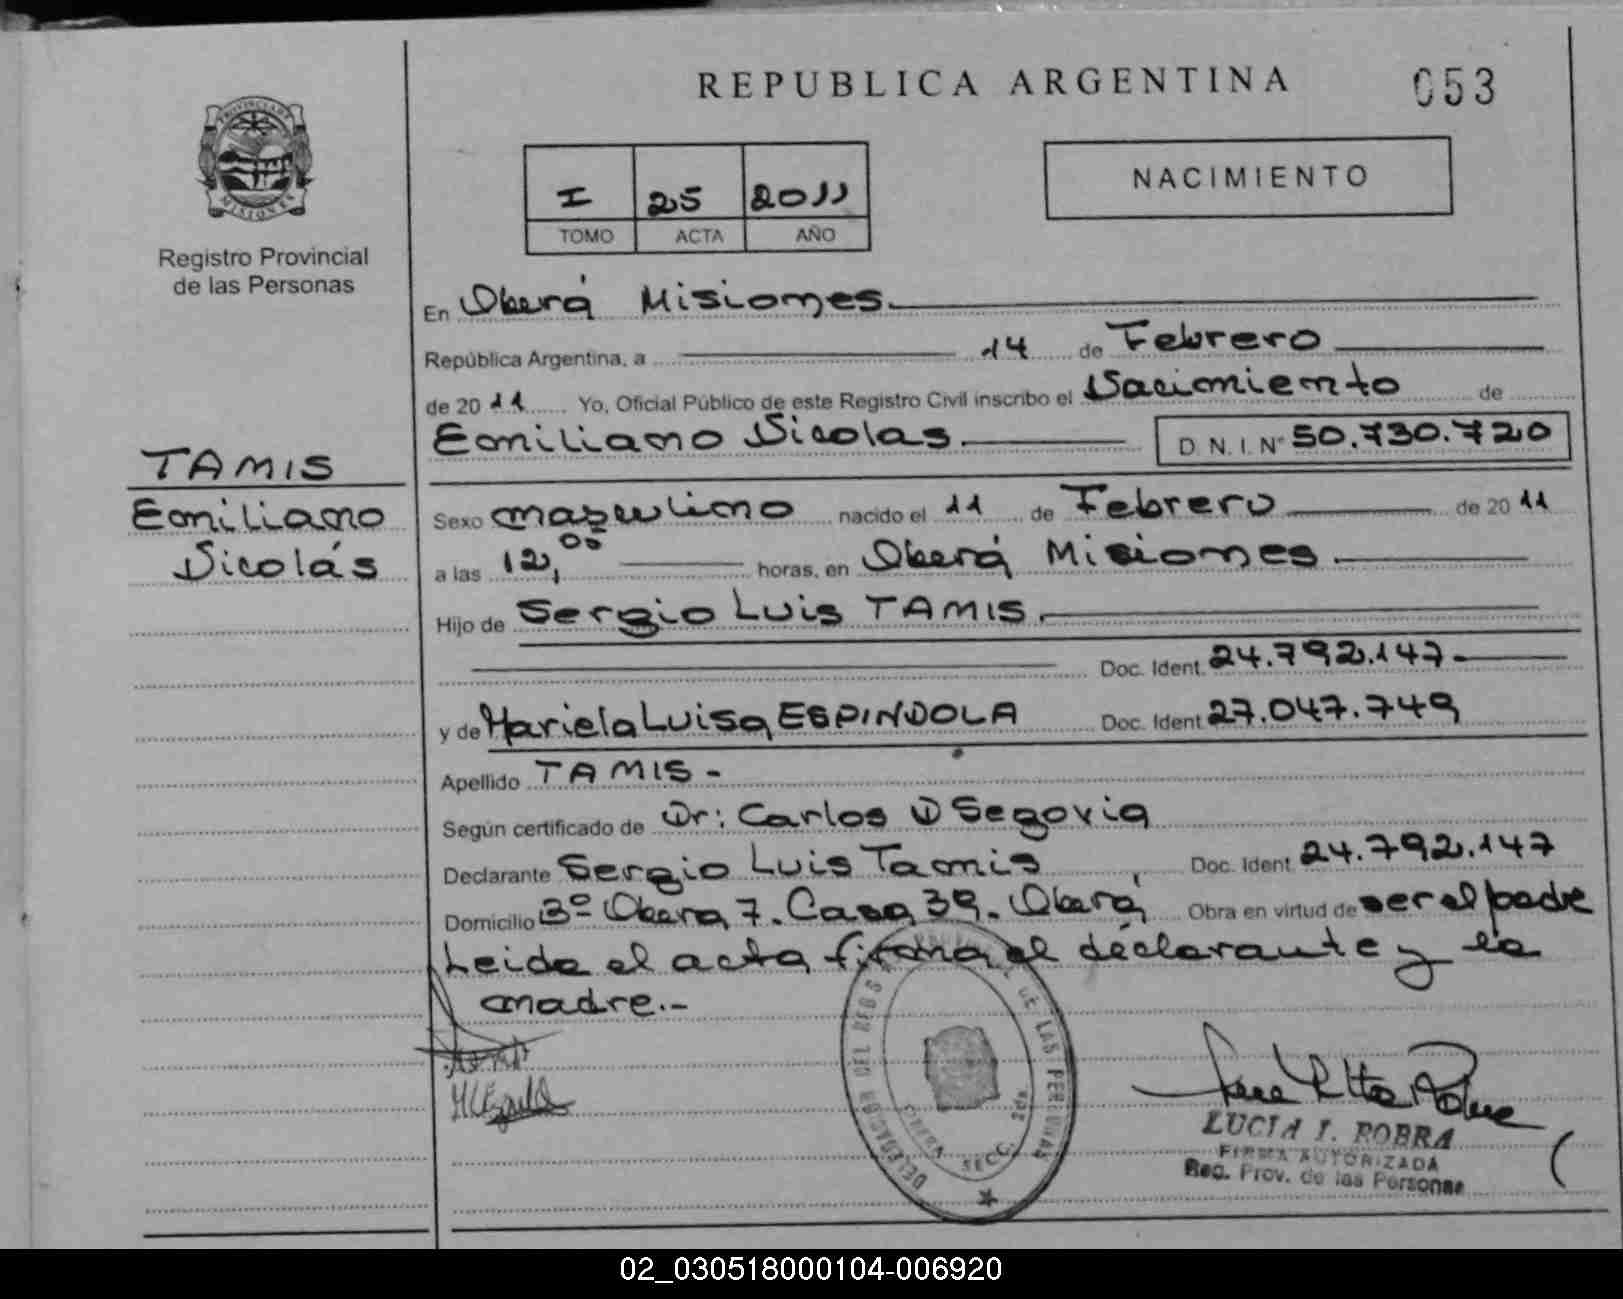 REPUBLICA ARGENTINA
053
PROVINCIA DE MISIONES
Registro Provincial
de las Personas
I 25 2011
TOMO ACTA AÑO
NACIMIENTO
En Oberá Misiones
República Argentina, a 14 de Febrero
de 2011 Yo, Oficial Público de este Registro Civil inscribo el Nacimiento de
Emiliano Nicolas D. N. I. Nº 50.730.720
TAMIS
Emiliano
Nicolás
Sexo masculino nacido el 11 de Febrero de 2011
a las 12,00 horas, en Oberá Misiones
Hijo de Sergio Luis TAMIS.
Doc. Ident. 24.792.147
y de Mariela Luisa ESPINDOLA Doc. Ident 27.047.749
Apellido TAMIS -
Según certificado de Dr: Carlos D Segovia
Declarante Sergio Luis Tamis, Doc. Ident 24.792.147
Domicilio Bº Obera 7. Casa 39. Oberá Obra en virtud de ser el padre
Leida el acta firma el declarante y la
madre.-
DELEGACION DEL REGISTRO DE LAS PERSONAS
SECC. 2da.
LUCIA I. ROBRA
FIRMA AUTORIZADA
Reg. Prov. de las Personas
02_030518000104-006920